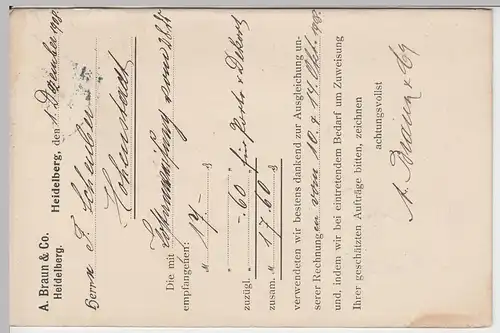 A. Braun & Co.
Heidelberg.
Heidelberg, den 1. Dezember 1908.
Herrn J.
Die mit Postanweisung vom 26. ds.
empfangenen:
„ 17.— „ ₰
zuzügl. „ —.60 „ für Porto &
zusam. „ 17.60 „ ₰
verwendeten wir bestens dankend zur Ausgleichung un-
serer Rechnungen vom 10. & 14. Okt. 1908.
und, indem wir bei eintretendem Bedarf um Zuweisung
Ihrer geschätzten Aufträge bitten, zeichnen
achtungsvollst
A. Braun & Co